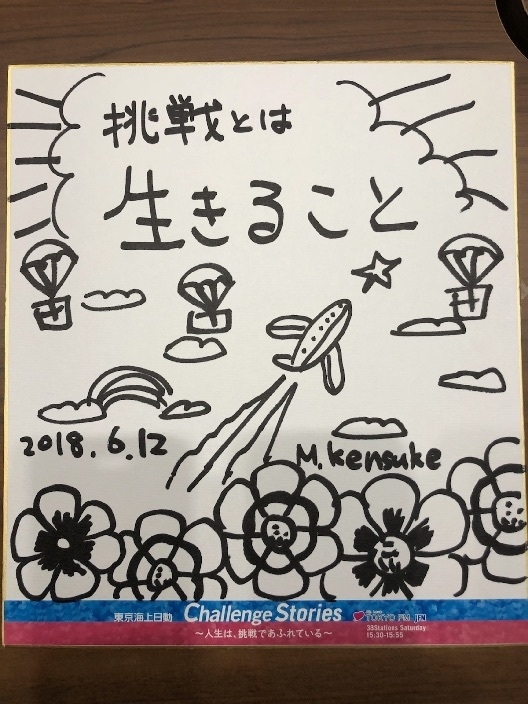 挑戦とは
生きること
2018.6.12
M.Kensuke
東京海上日動 Challenge Stories
〜人生は、挑戦であふれている〜
TOKYO FM JFN
38Stations Saturday
15:30-15:55